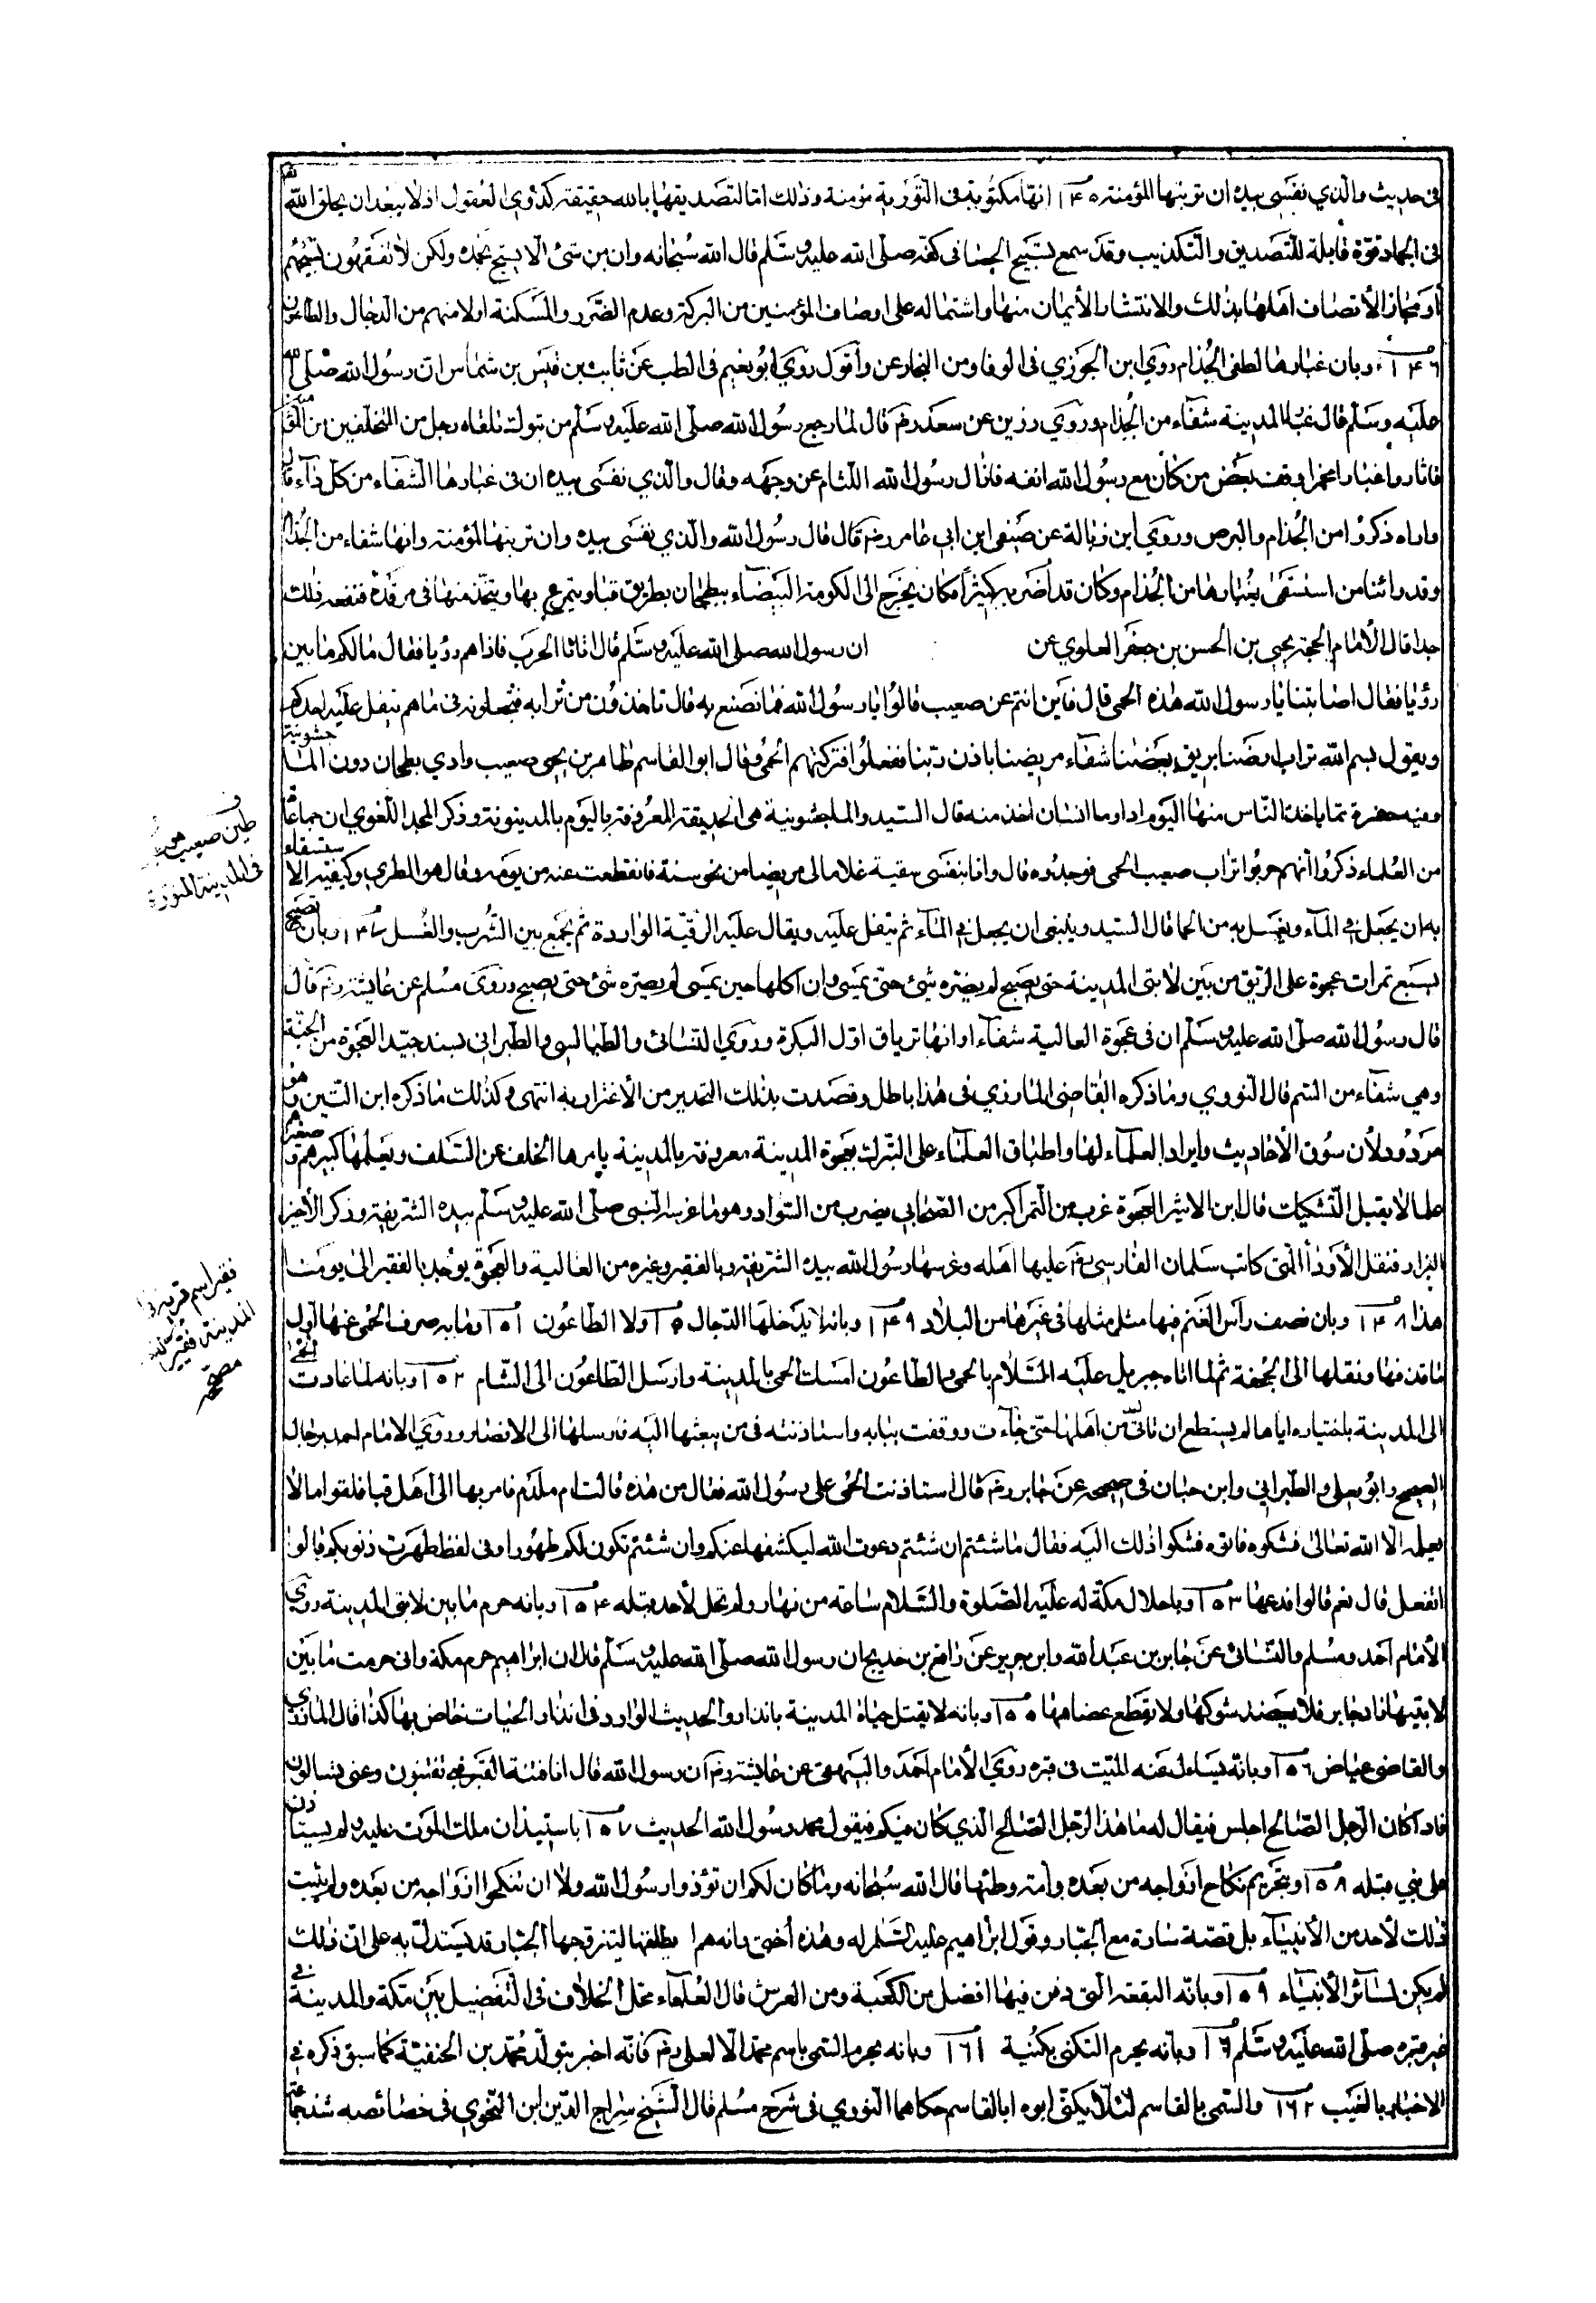 فى حديث والذي نفسى بيده ان تربتها المؤمنة ١٤٥ انها مكتوبة فى التورية مؤمنة وذلك اما لتصديقها بالله حقيقة كذوي العقول اذ لا يبعد ان يخلق الله تعا
فى الجماد قوة قابلة للتصديق والتكذيب وقد سمع تسبيح الحصا فى كفه صلى الله عليه وسلم قال الله سبحانه وان من شئ الا يسبح بحمده ولكن لا تفقهون تسبيحهم
او مجاز الاتصاف اهلها بذلك والانتشار الأيمان منها واشتماله على اوصاف المؤمنين من البركة وعدم الضرر والمسكنة اولامنهم من الدجال والطاعون
١٤٦ وبان غبارها لطفى الجذام روي ابن الجوزي فى الوفا ومن النجار عن وأقول روي ابو نعيم فى الطب عن ثابت بن قيس بن شماس ان رسول الله صلى الله
عليه وسلم قال غبار المدينة شفاء من الجذام وروي رزين عن سعد رضى قال لما رجع رسول الله صلى الله عليه وسلم من تبوك تلقاه رجل من المتخلفين من المؤمنين
فاثاروا غبارا فخمر او فغط بعض من كان مع رسول الله انفه فازال رسول الله اللثام عن وجهه وقال والذي نفسى بيده ان فى غبارها الشفاء من كل داء قال
واراه ذكروا من الجذام والبرص وروي ابن زبالة عن صيفى ابن ابى عامر رضى قال قال رسول الله والذي نفسى بيده وان تربتها لمؤمنة وانها شفاء من الجذام
وقد رائنا من استشفى بغبارها من الجذام وكان قد أضر به كثيرا فكان يخرج الى الكومة البيضاء ببطحان بطريق قبا ويتمرغ بها ويتخذ منها فى مرقده فنفعه ذلك
جدا قال الامام الحجة يحيى بن الحسن بن جعفر العلوي عن ان رسول الله صلى الله عليه وسلم قال اتانا الحرب فاذا هم روبا فقال مالكم يا بنى
روبا فقال اصابتنا يا رسول الله هذه الحمى قال فاين انتم عن صعيب قالوا يا رسول الله فما نصنع به قال تاخذون من ترابه فتجعلونه فى ماء ثم يتفل عليه احدكم
ويقول بسم الله تراب ارضنا بريق بعضنا شفاء مريضنا باذن ربنا ففعلوا فتركتهم الحمى وقال ابو القاسم طاهر بن يحيى صعيب وادي بطحان دون الماجشونية
وفيه حفرة مما ياخذ الناس منها اليوم اذا وبا انسان اخذ منه قال السيد والماجشونية هى الحديقة المعروفة باليوم بالمدينونة وذكر المجد اللغوي ان جماعة
من العلماء ذكروا انهم جربوا تراب صعيب الحمى فوجدوه قال وانا بنفسى سقيته غلاما لى مريضا من نحو سنة فانقطعت عنه من يومه وقال هو المطري وكيفية الاستشفاء
به ان يجعل فى الماء ويغتسل به من الحما قال السيد وينبغى ان يجعل فى الماء ثم يتفل عليه ويقال عليه الرقية الواردة ثم يجمع بين الشرب والغسل ١٤٧ وبان تصبح
بسبع تمرات عجوة على الريق من بين لابتى المدينة حتى يصبح لم يضره شئ حتى يمسى وان اكلها حين يمسى لم يضره شئ حتى يصبح وروى مسلم عن عايشة رضى قال
قال رسول الله صلى الله عليه وسلم ان فى عجوة العالية شفاء او انها ترياق اول البكرة وروي النسائى والطيالسى والطبرانى بسند جيد العجوة من الجنة
وهي شفاء من السم قال النووي وما ذكره القاضى المازري فى هذا باطل وقصدت بذلك التحذير من الأغترار به انتهى وكذلك ما ذكره ابن التين وهو
مردود لأن سوق الأحاديث وايراد العلماء لها واطباق العلماء على التبرك بعجوة المدينة معروفة بالمدينة يامرها الخلف عن السلف ويعلمها كبيرهم وصغيرهم
علما لا يقبل التشكيك قال ابن الاثير العجوة ضرب من التمر اكبر من الصيحاني يضرب من السواد وهو ما غرسه النبى صلى الله عليه وسلم بيده الشريفة وذكر الأخير
البزار فنقل الأود أ التى كاتب سلمان الفارسى رضى عليها اهله وغرسها رسول الله بيده الشريفة وبالفقير وغيره من العالية والعجوة يوجد بالفقير الى يومنا
هذا ١٤٨ وبان نصف رأس الغنم فيها مثلى مثلها فى غيرها من البلاد ١٤٩ وبانه لا يدخلها الدجال ١٥٠ ولا الطاعون ١٥١ وما به صرف الحمى عنها اول
ما قدمها ونقلها الى الجحفة ثم لما اتاه جبريل عليه السلام بالحمى والطاعون امسك الحمى بالمدينة وارسل الطاعون الى الشام ١٥٢ وبانه لما عادت الحمى
الى المدينة باختياره اياها لم يستطع ان تاتى من اهلها حتى جاءت ووقفت ببابه واستاذنته فى من يبعثها اليه فارسلها الى الانصار وروي الامام احمد برجال
الصحيح وابو يعلى والطبراني وابن حبان فى صحيحه عن جابر رضى قال استاذنت الحمى على رسول الله فقال من هذه قالت ام ملدم فامر بها الى اهل قبا فلقوا ما لا
يعلمه الا الله تعالى فشكوه فاتوه فشكوا ذلك اليه فقال ما شئتم ان شئتم دعوت الله ليكشفها عنكم وان شئتم تكون لكم طهورا وفى لفظ طهرت ذنوبكم قالوا
اتفعل قال نعم قالوا فدعها ١٥٣ وباحلال مكة له عليه الصلوة والسلام ساعة من نهار ولم تحل لأحد قبله ١٥٤ وبانه حرم ما بين لابتى المدينة روي
الأمام احمد ومسلم والنسائى عن جابر بن عبد الله وابن جرير عن رافع بن خديج ان رسول الله صلى الله عليه وسلم قال ان ابراهيم حرم مكة وانى حرمت ما بين
لابتيها زاد جابر فلا يعضد شوكها ولا يقطع عضاهها ١٥٥ وبانه لا يقتل حياة المدينة بانذار والحديث الوارد فى انذار الحيات خاص بها كذا قال المازري
والقاضى عياض ١٥٦ وبانه يسأل عنه الميت فى قبره روي الأمام احمد والبيهقى عن عايشة رضى ان رسول الله قال اما فتنة القبر فبى تفتنون وعنى تسالون
فاذا كان الرجل الصالح اجلس فيقال له ما هذا الرجل الصالح الذي كان فيكم فيقول محمد رسول الله الحديث ١٥٧ باستيذان ملك الموت عليه ولم يستاذن
على نبي قبله ١٥٨ وبتحريم نكاح ازواجه من بعده وامته وطئها قال الله سبحانه وما كان لكم ان تؤذوا رسول الله ولا ان تنكحوا ازواجه من بعده ولم يثبت
ذلك لأحد من الأنبياء بل قصة سارة مع الجبار وقول ابراهيم عليه السلم له وهذه أختى وانه هم ا يطلقها ليتزوجها الجبار قد يستدل به على ان ذلك
لم يكن لسائر الأنبياء ١٥٩ وبانه البقعة التى دفن فيها افضل من الكعبة ومن العرش قال العلماء محل الخلاف فى التفضيل بين مكة والمدينة فى
غير قبره صلى الله عليه وسلم ١٦٠ وبانه يحرم التكنى بكنية ١٦١ وبانه يحرم التسمى باسم محمد الا لعلى رضى فانه اخبر بتولد محمد بن الحنفية كما سبق ذكره فى
الاخبار بالغيب ١٦٢ والتسمى بالقاسم لئلا يكنى ابوه ابا القاسم حكاهما النووي فى شرح مسلم قال الشيخ سراج الدين ابن النحوي فى خصائصه شذ جماعة
طين صعيب هو
فى المدينة المنورة
فقير اسم قرية فى
المدينة فقير
مصحح